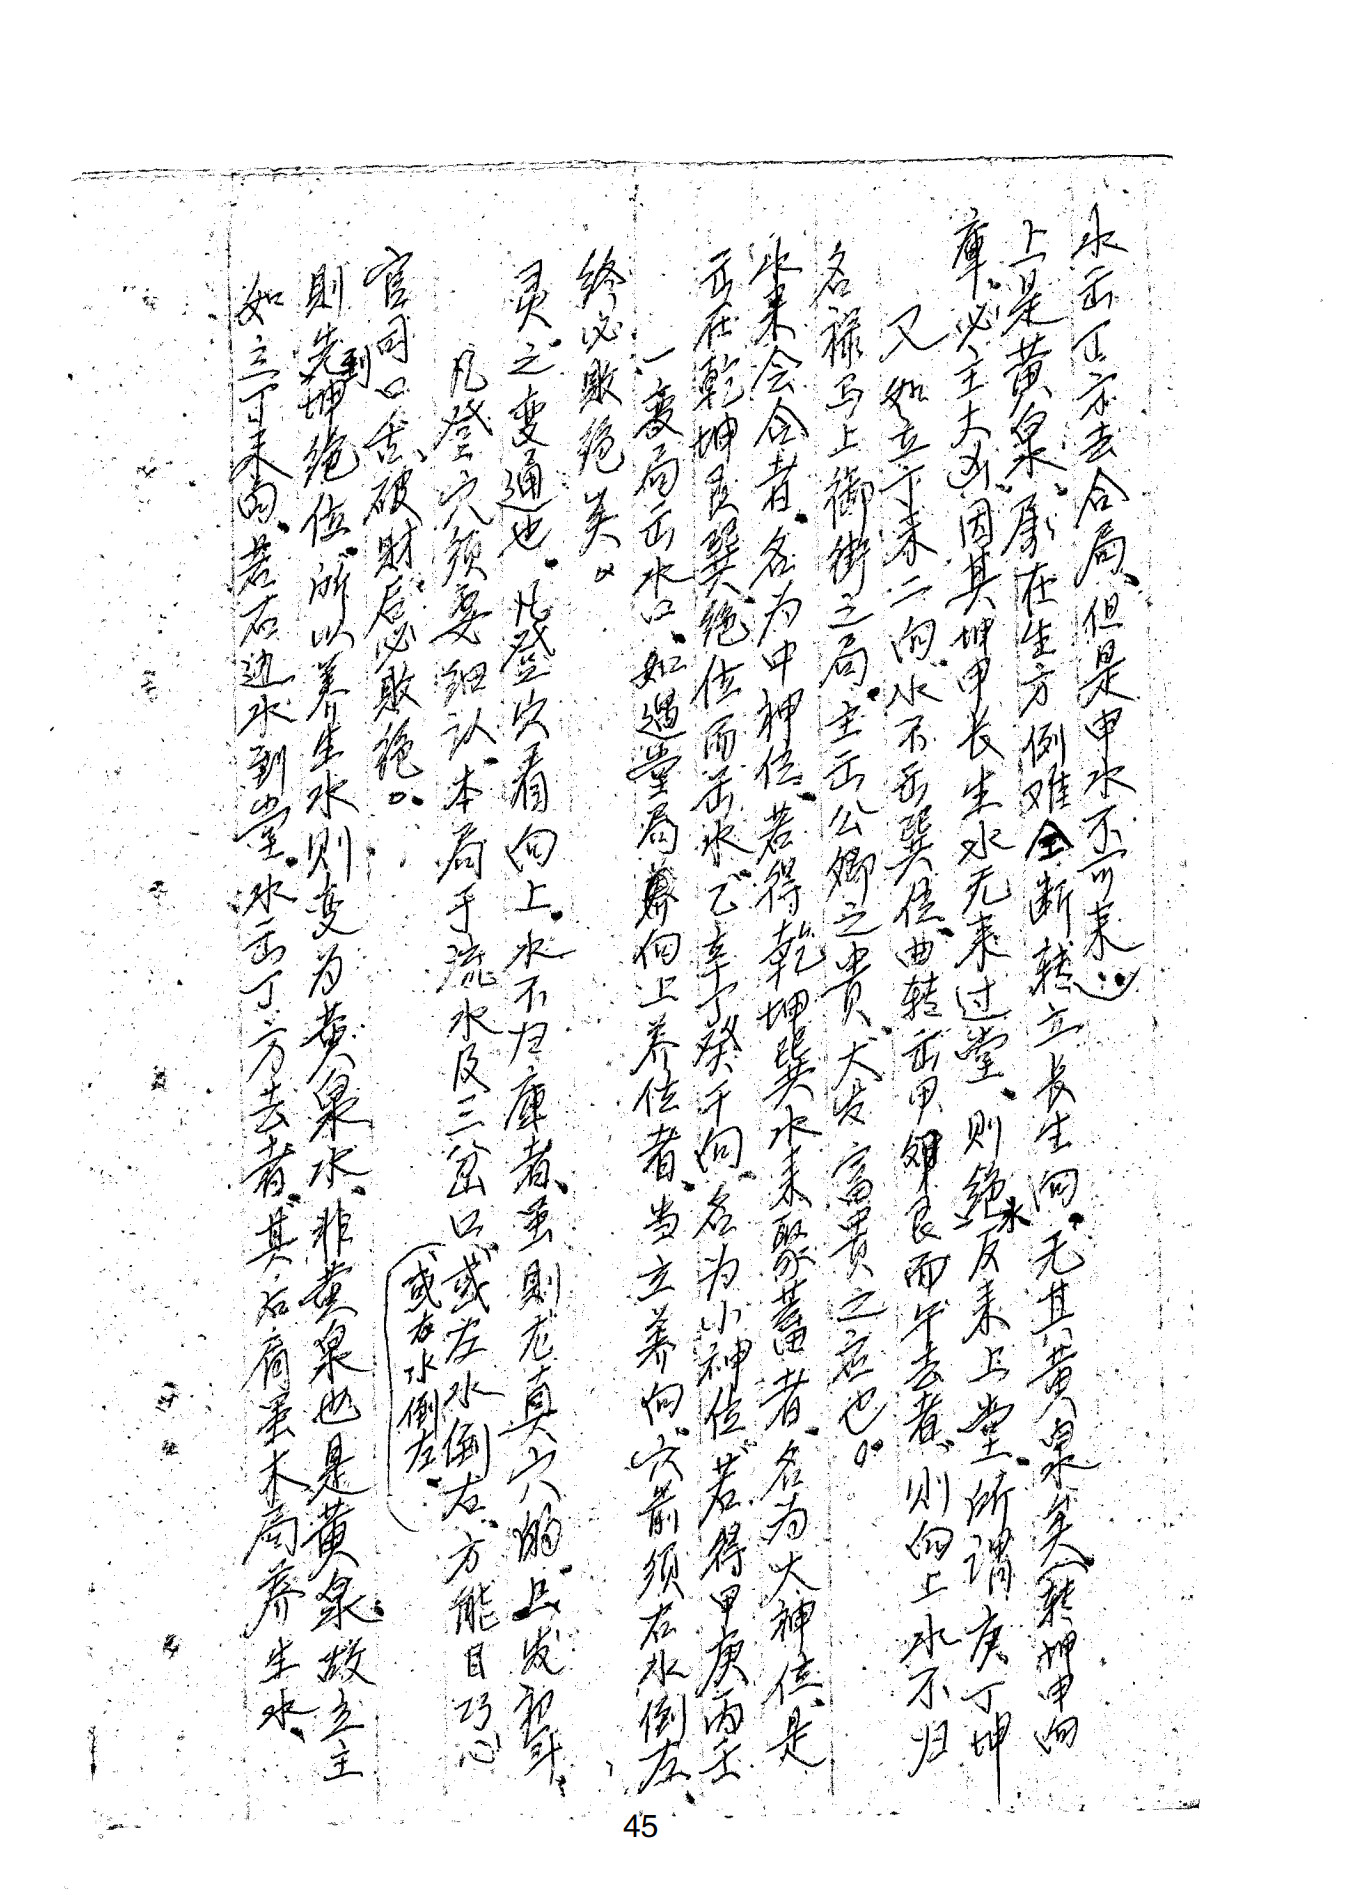 水出丁亦去合局、但是申水不可来
上是黄泉、原在生方倒难全断转立长生向、无其黄泉矣(转坤申向
庫、必主大凶、因其坤申长生水无来过堂、则绝水反来上堂、所谓庚丁坤
又如立丁未二向、水不出巽位、曲转出甲卯艮而午去者、则向上水不归
名禄马上御街之局、主出公卿之贵、大发富贵之应也。
水来会合者、名为中神位、若得乾坤巽水来聚蓄者、名为大神位、是
出在乾坤艮巽绝位而出水、乙辛丁癸干向、名为小神位、若得甲庚丙壬
一变局出水口、如遇堂局养向上养位者、当立养向、穴前须右水倒左、
终必败绝矣。
灵之变通也、凡登穴看向上、水不归庫者、虽則龙真穴的、且发初年、
凡登穴须要细认、本局于流水及三岔口、或左水倒右、方能目巧心
(或右水倒左、
官司口舌、破财后必败绝。
則先到坤绝位、所以养生水则变为黄泉水、非黄泉也是黄泉、故立主
如立丁未向、若右边水到堂、水出丁方去者、其右肩虽木局养生水、
45